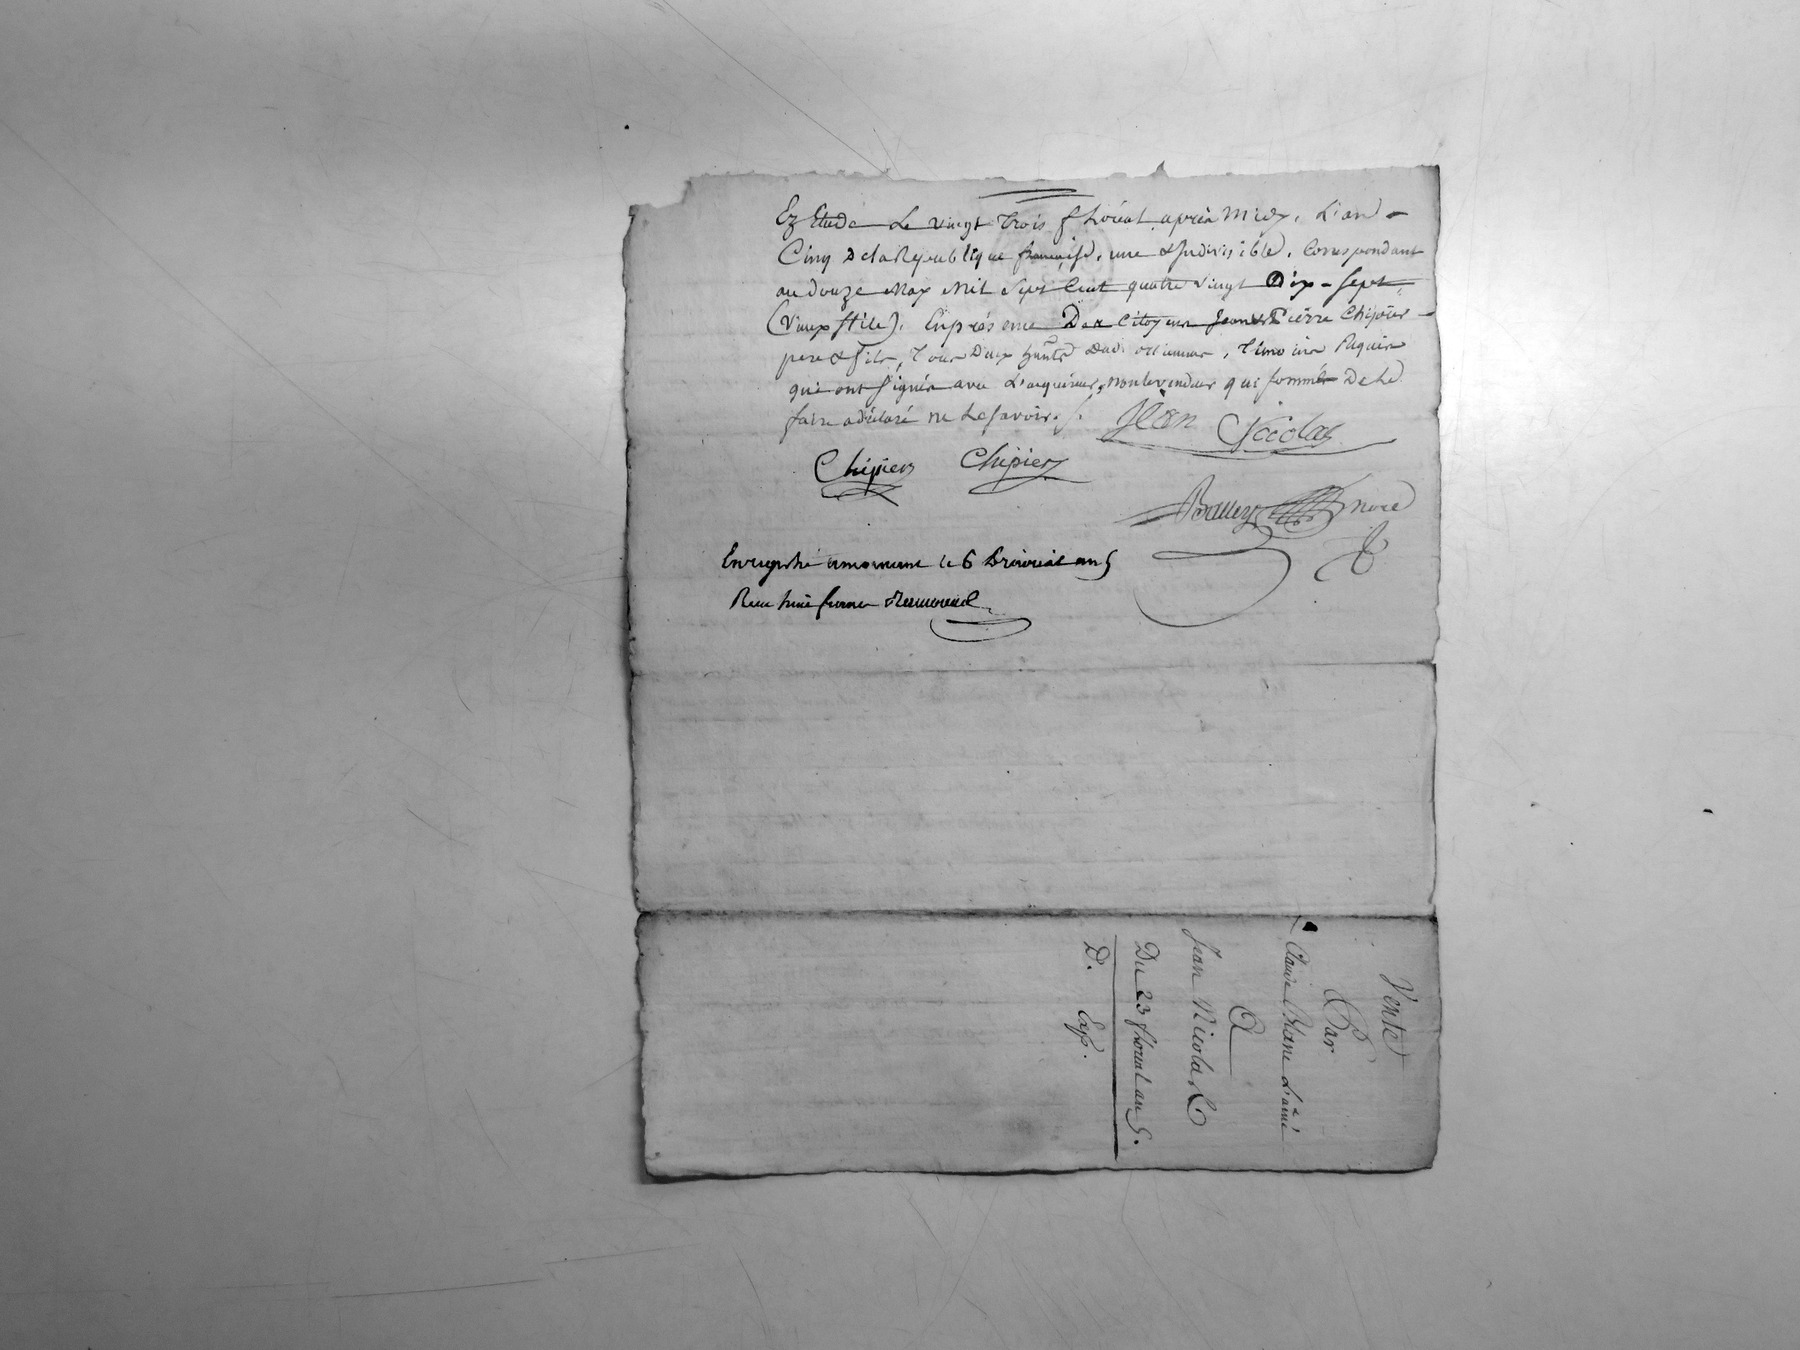 Ez Etude Le vingt trois floréal après midy, L'an
Cinq de la Republique française, une & indivisible, Correspondant
au douze May Mil Sept Cent quatre vingt Dix-Sept
(vieux stile), En présence Des Citoyens Jean & Pierre Chipier
pere & fils, tous deux
qui ont signés avec L'acquéreur, non le vendeur qui sommé De le
faire a déclaré ne le savoir.
Jean Nicolas
Chipier Chipier
Balley nore
Enregistré le 6 prairial an 5
Reçu
Vente
Par
Claude Blanc L'ainé
A
Jean Nicolas
Du 23 floreal an 5.
D. Exp.